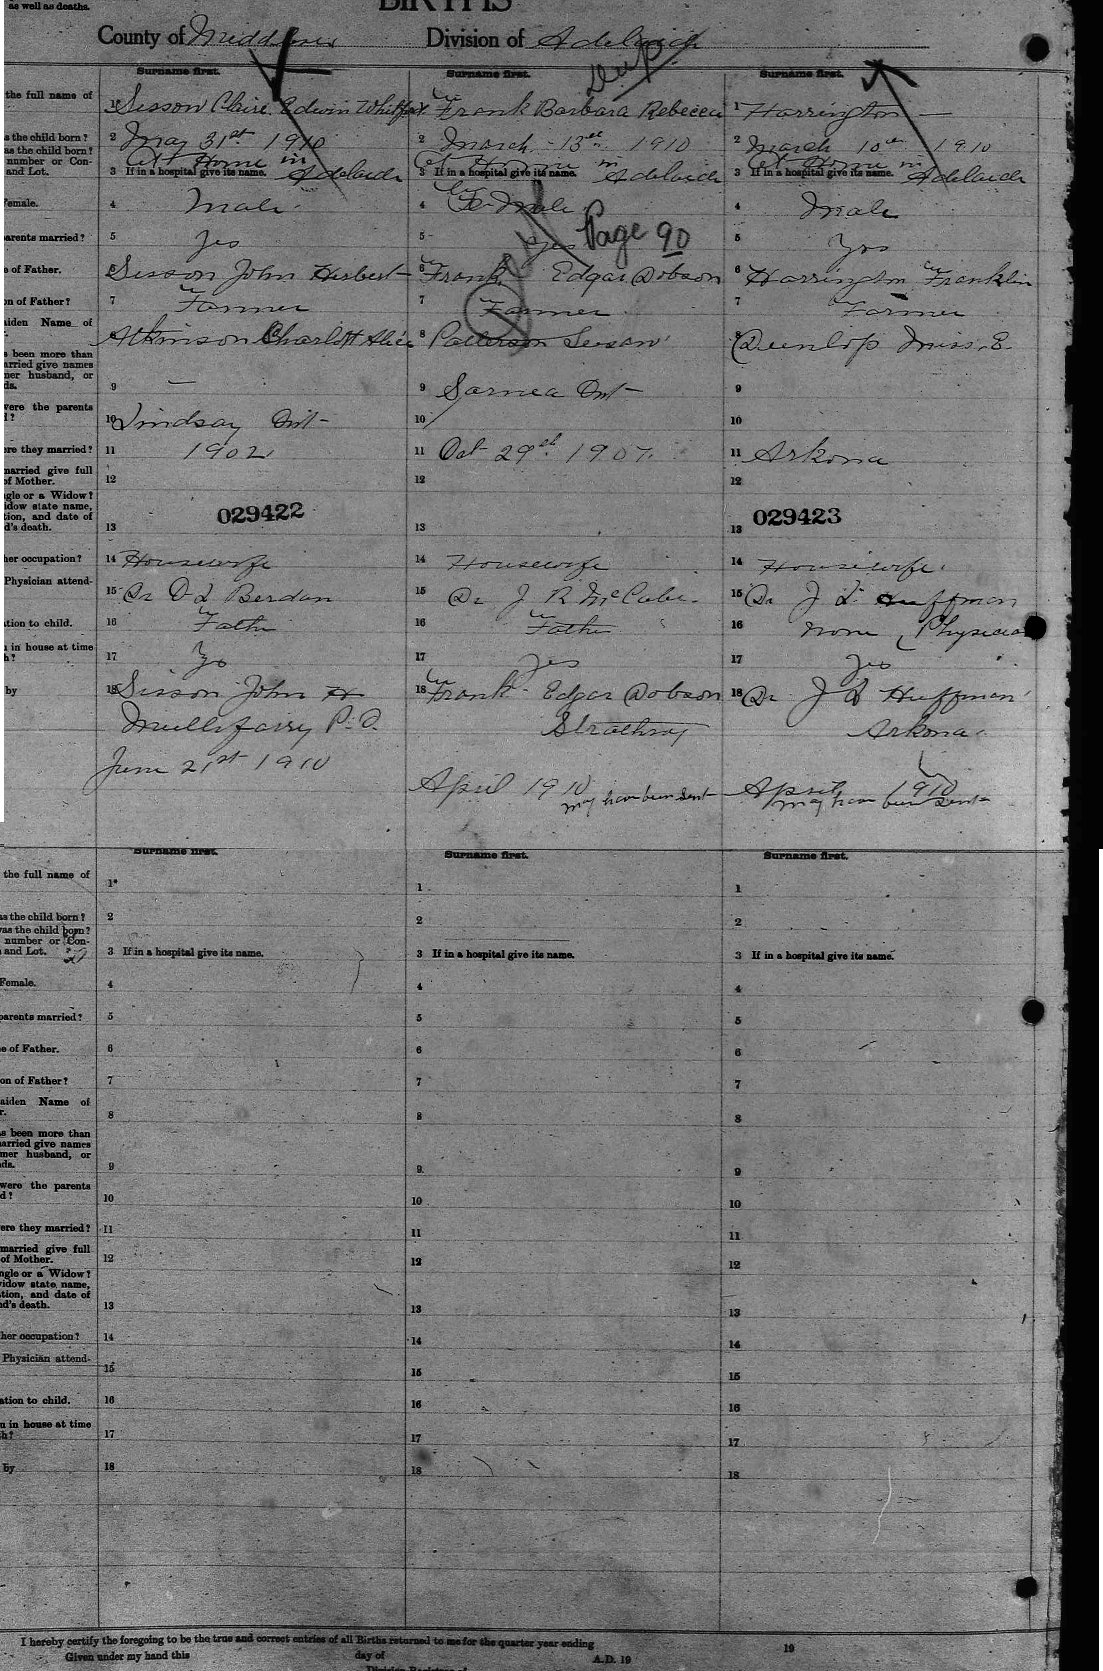 as well as deaths.
BIRTHS
County of Middlesex Division of Adelaide
Dup
Surname first. Surname first. Surname first.
the full name of
1 Sisson Claire Edwin 1 Frank Barbara Rebecca 1 Harrington —
as the child born? 2 May 31st 1910 2 March 13th 1910 2 March 10th 1910
as the child born?
number or Con-
and Lot. 3 If in a hospital give its name. At Home in Adelaide 3 If in a hospital give its name. At Home in Adelaide 3 If in a hospital give its name. At Home in Adelaide
Female. 4 Male 4 Fe Male 4 Male
Page 90
parents married? 5 Yes 5 Yes 5 Yes
e of Father. 6 Sisson John Herbert 6 Frank Edgar Dobson 6 Harrington Franklin
on of Father? 7 Farmer 7 Farmer 7 Farmer
aiden Name of
r. 8 Atkinson Charlott Alice 8 Patterson Susan 8 Dunlop Miss E.
s been more than
arried give names
mer husband, or
ds. 9 — 9 Sarnea Ont 9
were the parents
d? 10 Lindsay Ont 10 10
ere they married? 11 1902 11 Oct 29th 1907 11 Arkona
married give full
of Mother. 12 12 12
ngle or a Widow?
idow state name,
tion, and date of
d's death. 13 029422 13 13 029423
her occupation? 14 Housewife 14 Housewife 14 Housewife
Physician attend-
15 Dr D L Berdan 15 Dr J R McCabe 15 Dr J L Huffman
ation to child. 16 Father 16 Father 16 None Physician
n in house at time
h? 17 Yes 17 Yes 17 Yes
by 18 Sisson John H 18 Frank Edgar Dobson 18 Dr J L Huffman
Mullifarry P.O. Strathroy Arkona
June 21st 1910
April 1910 April 1910
may have been sent may have been sent
Surname first. Surname first. Surname first.
the full name of
1 1 1
as the child born? 2 2 2
was the child born?
number or Con-
and Lot. 3 If in a hospital give its name. 3 If in a hospital give its name. 3 If in a hospital give its name.
Female. 4 4 4
parents married? 5 5 5
e of Father. 6 6 6
on of Father? 7 7 7
aiden Name of
r. 8 8 8
s been more than
arried give names
mer husband, or
ds. 9 9 9
were the parents
d? 10 10 10
ere they married? 11 11 11
married give full
of Mother. 12 12 12
ngle or a Widow?
idow state name,
tion, and date of
d's death. 13 13 13
her occupation? 14 14 14
Physician attend-
15 15 15
ation to child. 16 16 16
n in house at time
h? 17 17 17
by 18 18 18
I hereby certify the foregoing to be the true and correct entries of all Births returned to me for the quarter year ending 19
Given under my hand this day of A.D. 19
Division Registrar of